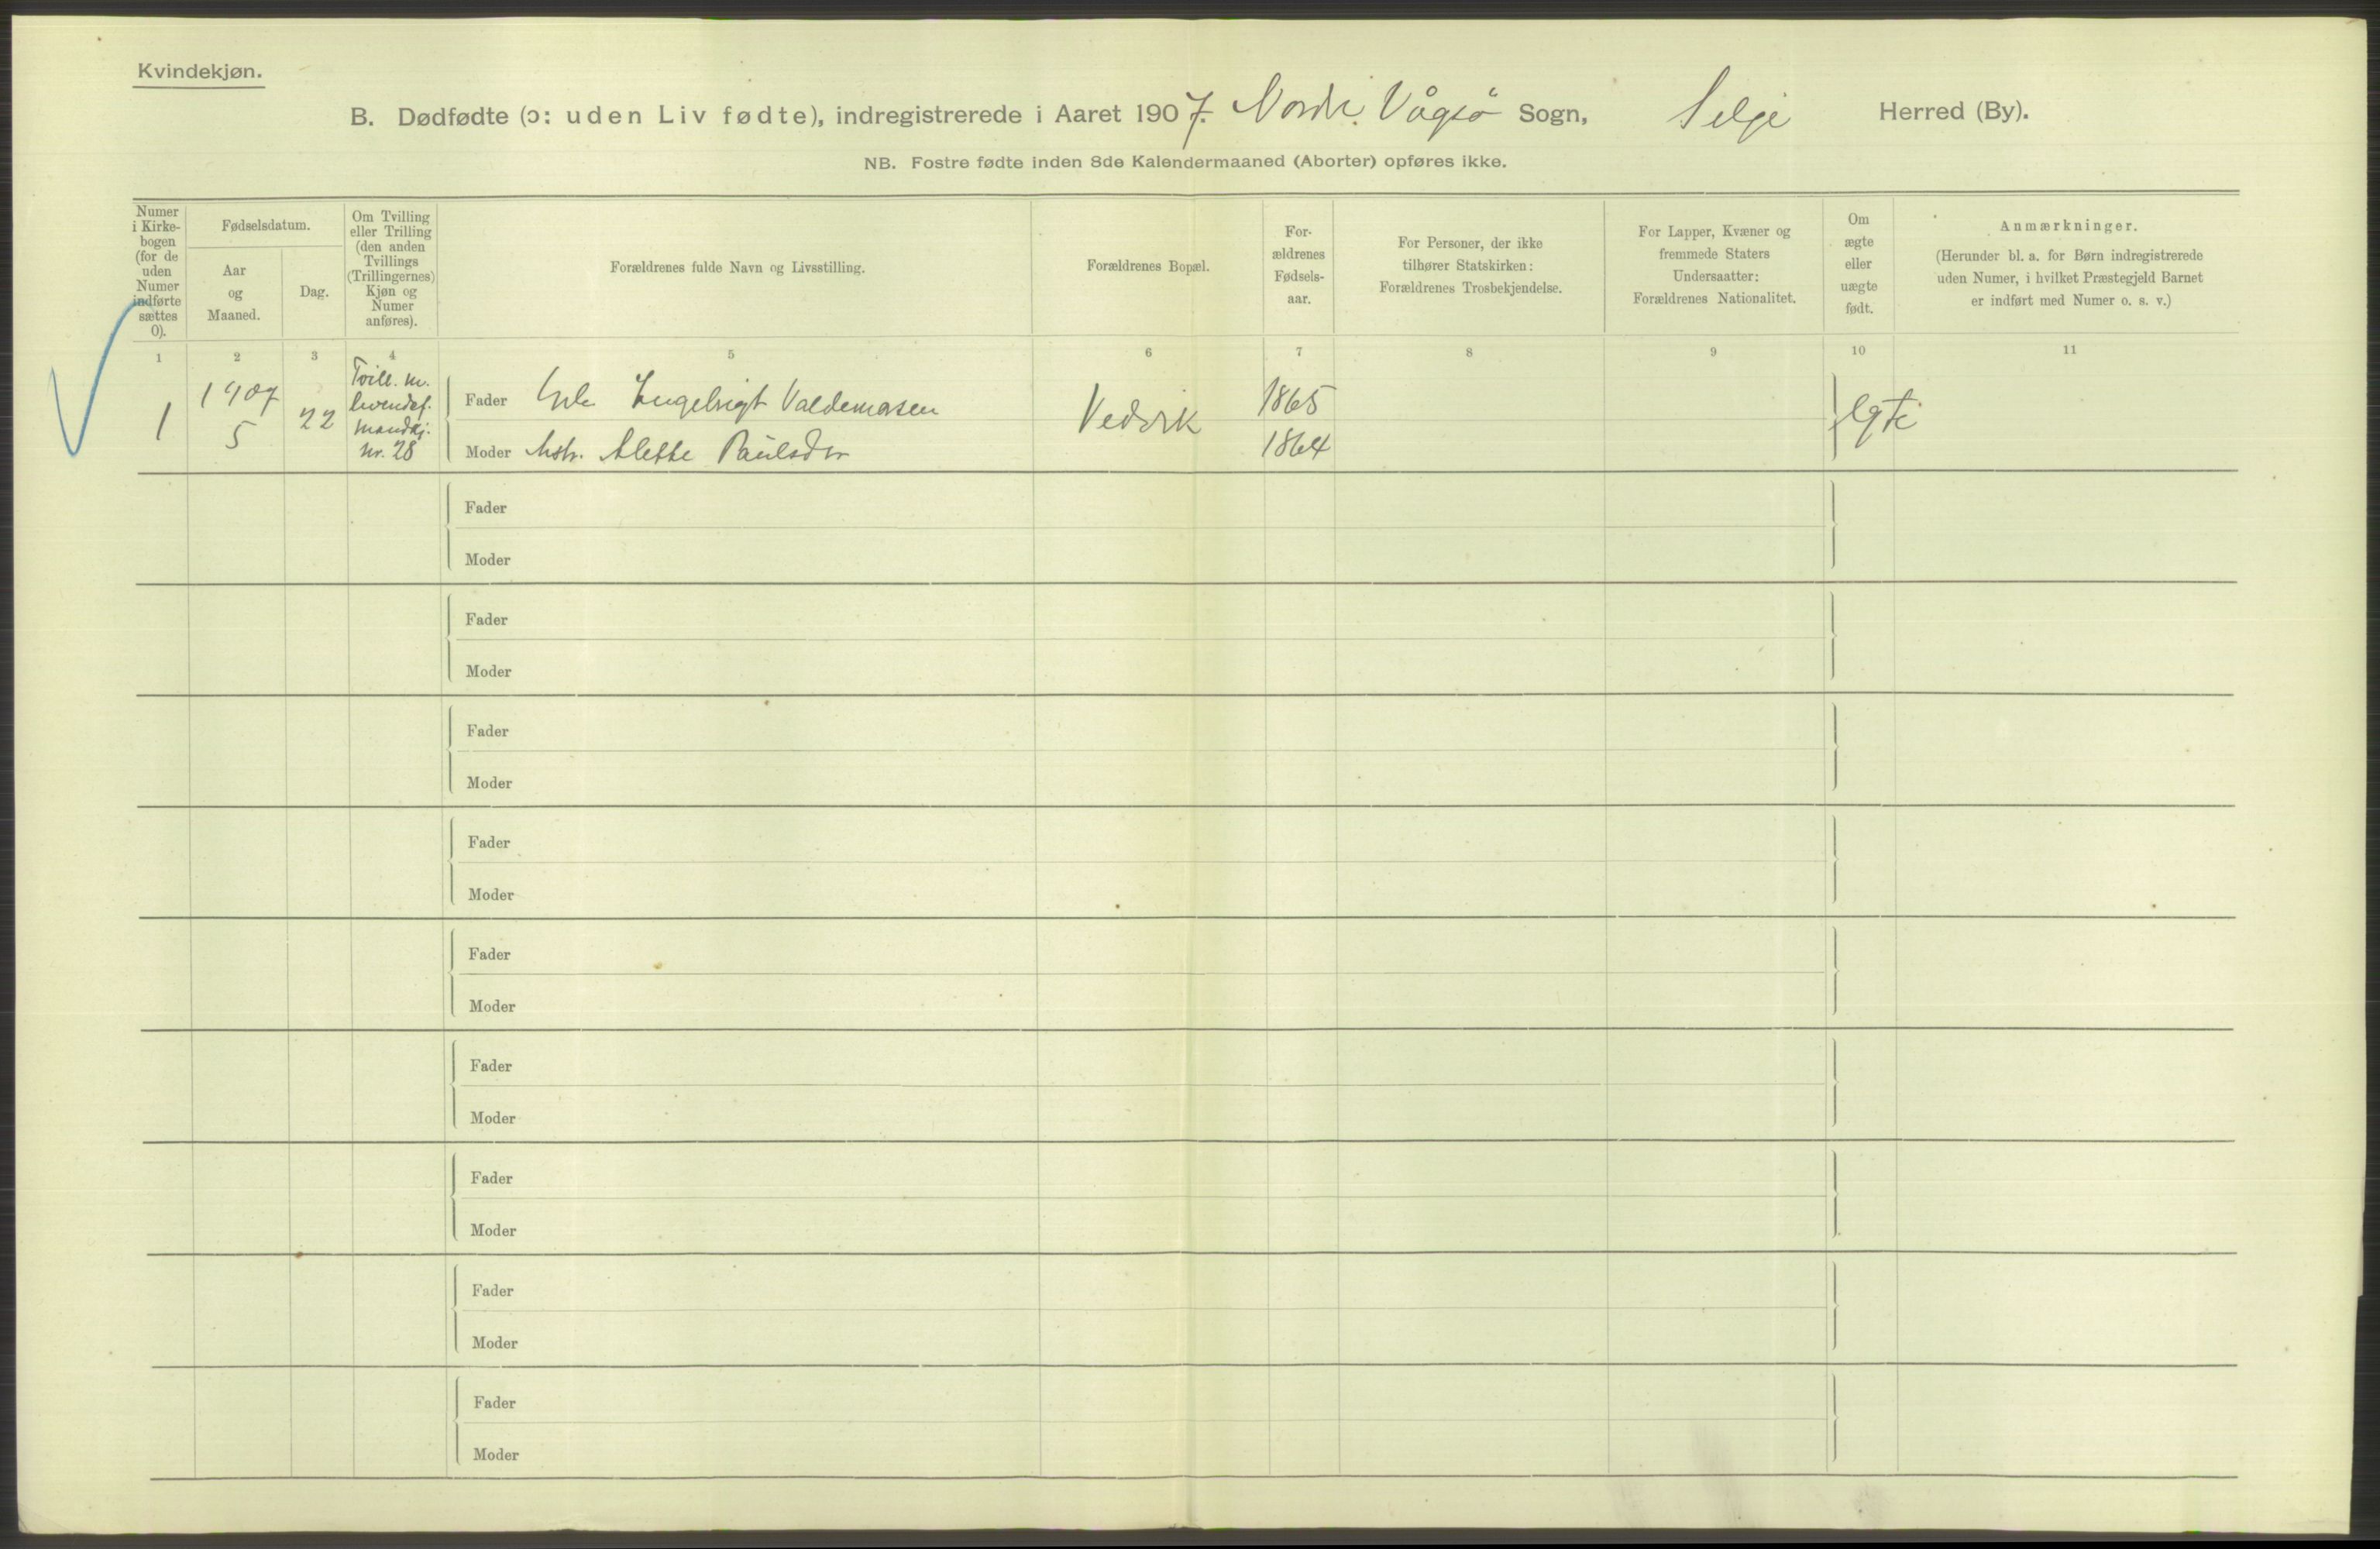 Kvindekjøn.
B. Dødfødte (ɔ: uden Liv fødte), indregistrerede i Aaret 1907. Nordr. Vågsö Sogn, Selje Herred (By).
NB. Fostre fødte inden 8de Kalendermaaned (Aborter) opføres ikke.
Numer
i Kirke-
bogen
(for de
uden
Numer
indførte
sættes
0).
Fødselsdatum.
Aar
og
Maaned.
Dag.
Om Tvilling
eller Trilling
(den anden
Tvillings
(Trillingernes)
Kjøn og
Numer
anføres).
Forældrenes fulde Navn og Livsstilling.
Forældrenes Bopæl.
For-
ældrenes
Fødsels-
aar.
For Personer, der ikke
tilhører Statskirken:
Forældrenes Trosbekjendelse.
For Lapper, Kvæner og
fremmede Staters
Undersaatter:
Forældrenes Nationalitet.
Om
ægte
eller
uægte
født.
Anmærkninger.
(Herunder bl. a. for Børn indregistrerede
uden Numer, i hvilket Præstegjeld Barnet
er indført med Numer o. s. v.)
1 2 3 4 5 6 7 8 9 10 11
1
1907
5
22
Tvill. m.
levendef.
mandkj.
nr. 28
Fader Engelbrigt Valdemarsen
Moder Alette Paulsdtr
Vedvik
1865
1864
Egte
Fader
Moder
Fader
Moder
Fader
Moder
Fader
Moder
Fader
Moder
Fader
Moder
Fader
Moder
Fader
Moder
Fader
Moder